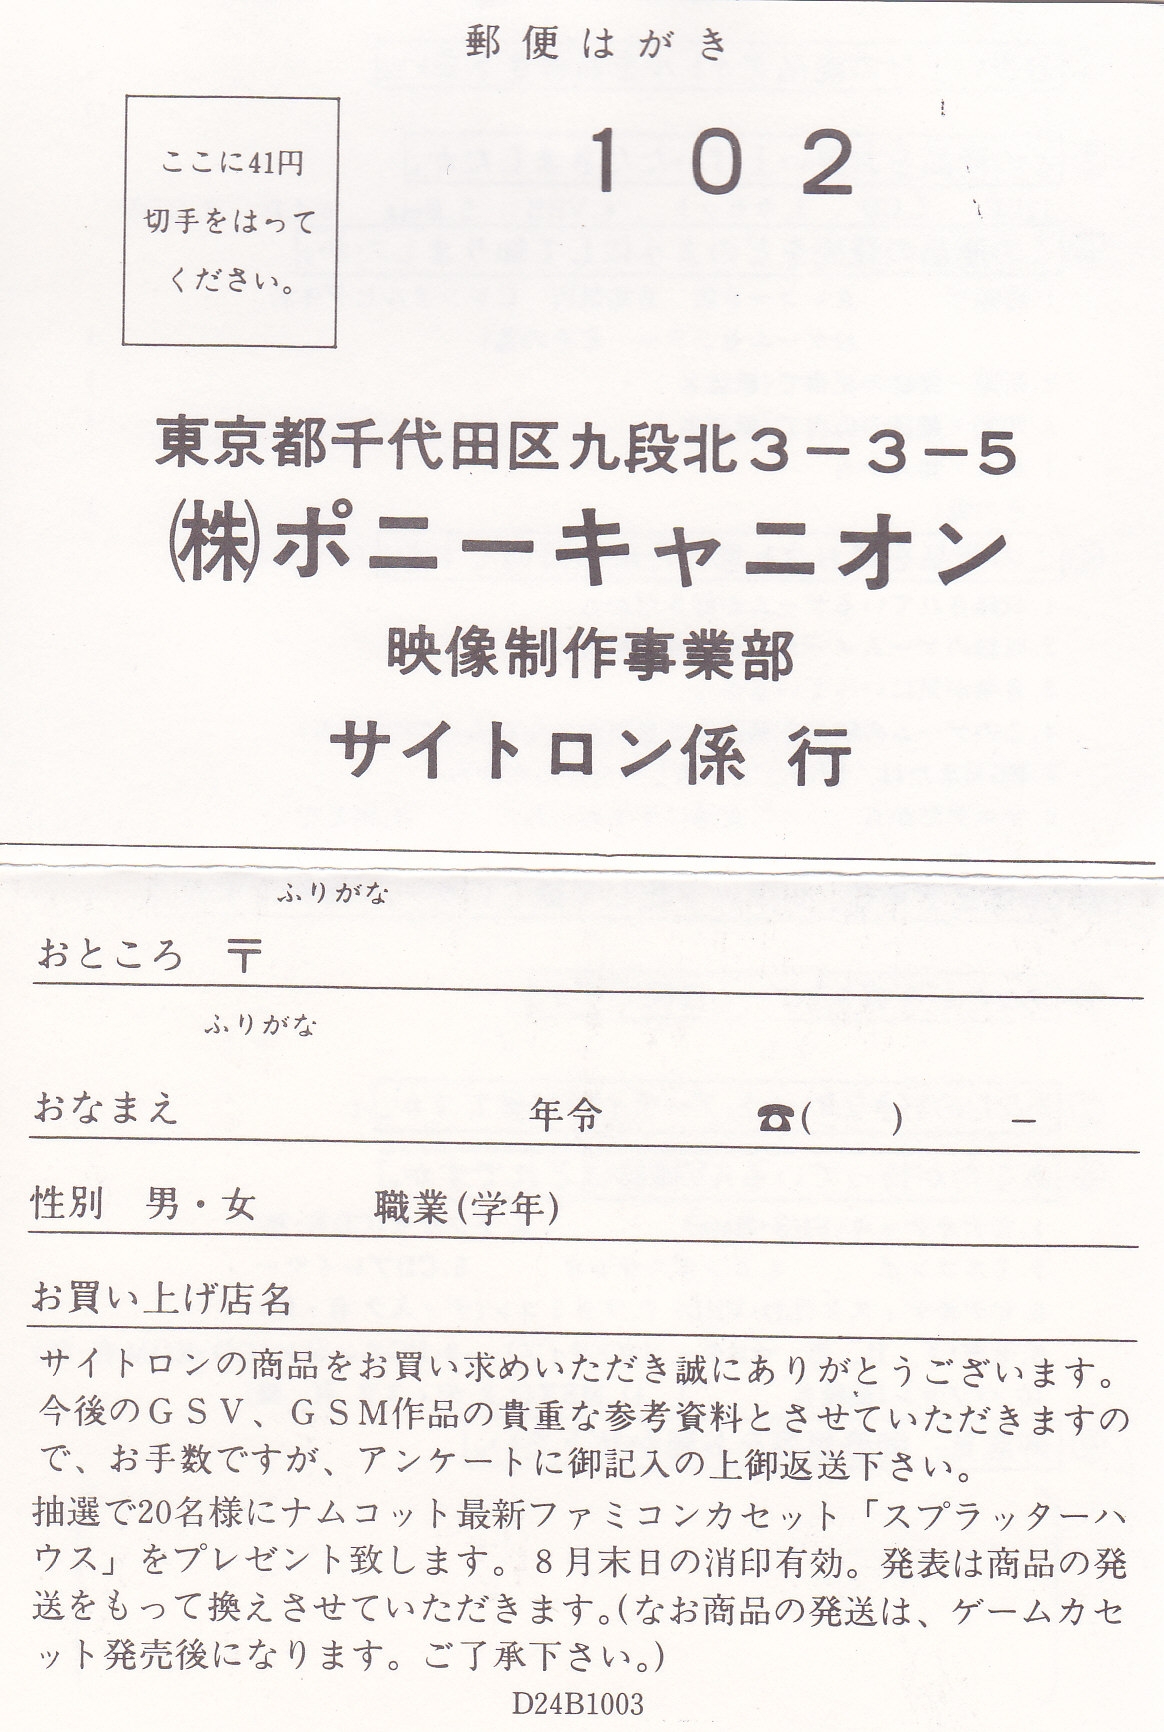 郵便はがき
ここに41円
切手をはって
ください。
102
東京都千代田区九段北3-3-5
㈱ポニーキャニオン
映像制作事業部
サイトロン係 行
ふりがな
おところ 〒
ふりがな
おなまえ 年令 ☎( ) −
性別 男・女 職業(学年)
お買い上げ店名
サイトロンの商品をお買い求めいただき誠にありがとうございます。
今後のGSV、GSM作品の貴重な参考資料とさせていただきますの
で、お手数ですが、アンケートに御記入の上御返送下さい。
抽選で20名様にナムコット最新ファミコンカセット「スプラッターハ
ウス」をプレゼント致します。8月末日の消印有効。発表は商品の発
送をもって換えさせていただきます。(なお商品の発送は、ゲームカセ
ット発売後になります。ご了承下さい。)
D24B1003